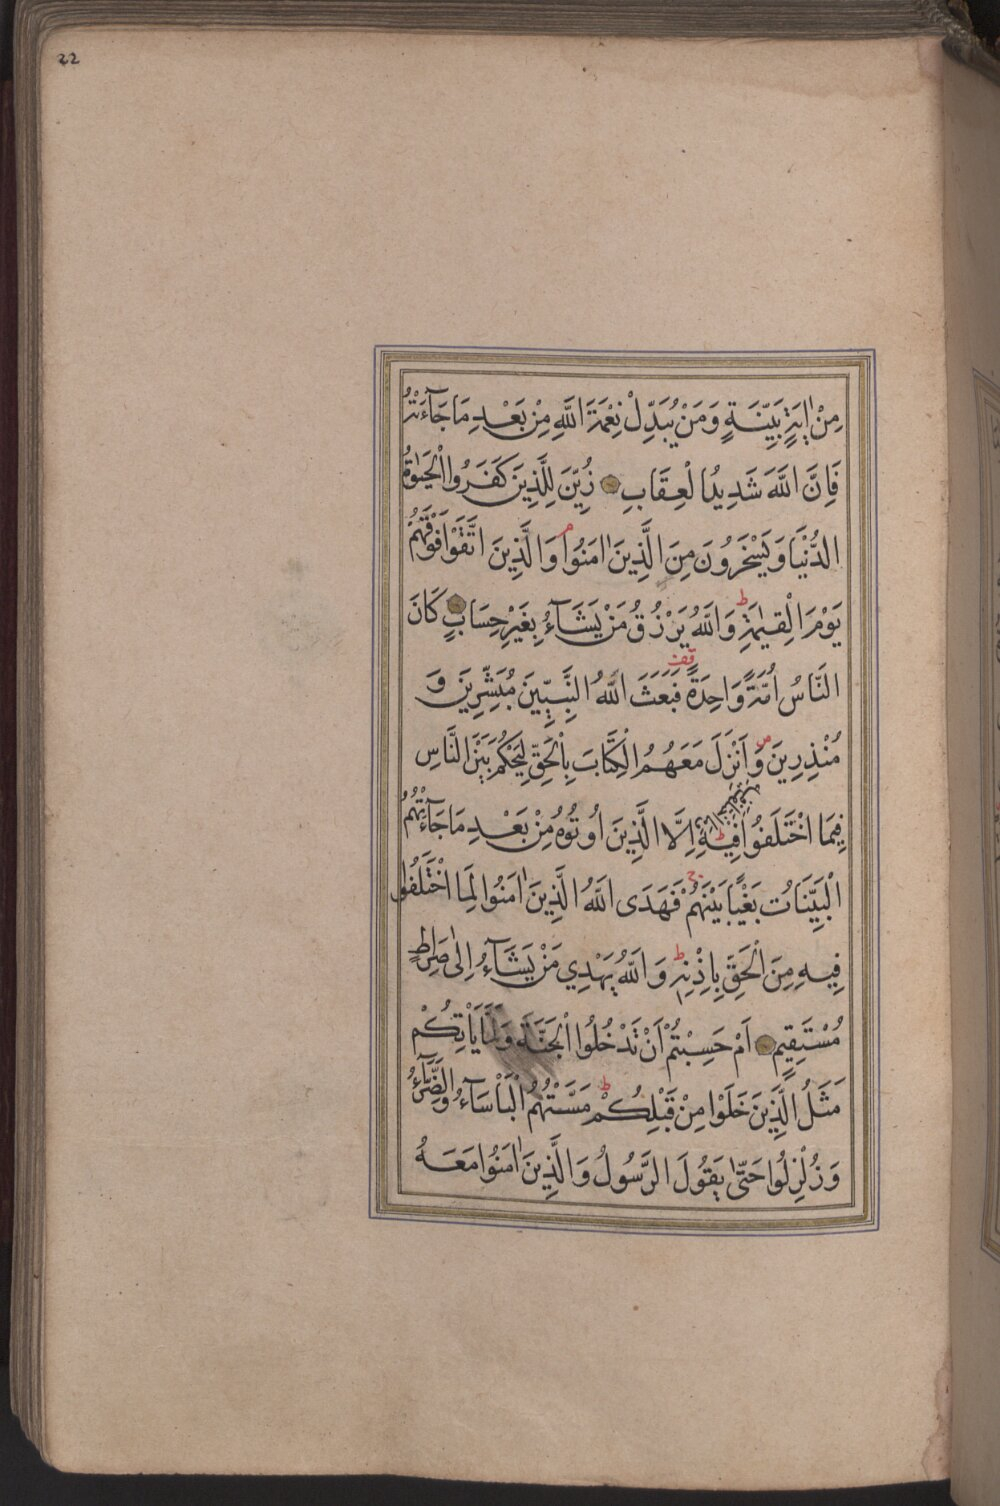 22
مِنْ اٰيَةٍ بَيِّنَةٍ وَمَنْ يُبَدِّلْ نِعْمَةَ اللّٰهِ مِنْ بَعْدِ مَا جَآءَتْهُ
فَاِنَّ اللّٰهَ شَدِيدُ الْعِقَابِ زُيِّنَ لِلَّذِينَ كَفَرُوا الْحَيٰوةُ
الدُّنْيَا وَيَسْخَرُونَ مِنَ الَّذِينَ اٰمَنُوا م وَالَّذِينَ اتَّقَوْا فَوْقَهُمْ
يَوْمَ الْقِيٰمَةِ ط وَاللّٰهُ يَرْزُقُ مَنْ يَشَآءُ بِغَيْرِ حِسَابٍ كَانَ
النَّاسُ اُمَّةً وَاحِدَةً قف فَبَعَثَ اللّٰهُ النَّبِيِّينَ مُبَشِّرِينَ وَ
مُنْذِرِينَ ص وَاَنْزَلَ مَعَهُمُ الْكِتَابَ بِالْحَقِّ لِيَحْكُمَ بَيْنَ النَّاسِ
فِيمَا اخْتَلَفُوا فِيهِ ط اِلَّا الَّذِينَ اُوتُوهُ مِنْ بَعْدِ مَا جَآءَتْهُمُ
الْبَيِّنَاتُ بَغْيًا بَيْنَهُمْ ج فَهَدَى اللّٰهُ الَّذِينَ اٰمَنُوا لِمَا اخْتَلَفُوا
فِيهِ مِنَ الْحَقِّ بِاِذْنِهِ ط وَاللّٰهُ يَهْدِي مَنْ يَشَآءُ اِلٰى صِرَاطٍ
مُسْتَقِيمٍ اَمْ حَسِبْتُمْ اَنْ تَدْخُلُوا الْجَنَّةَ وَلَمَّا يَأْتِكُمْ
مَثَلُ الَّذِينَ خَلَوْا مِنْ قَبْلِكُمْ ط مَسَّتْهُمُ الْبَأْسَآءُ وَالضَّرَّآءُ
وَزُلْزِلُوا حَتّٰى يَقُولَ الرَّسُولُ وَالَّذِينَ اٰمَنُوا مَعَهُ